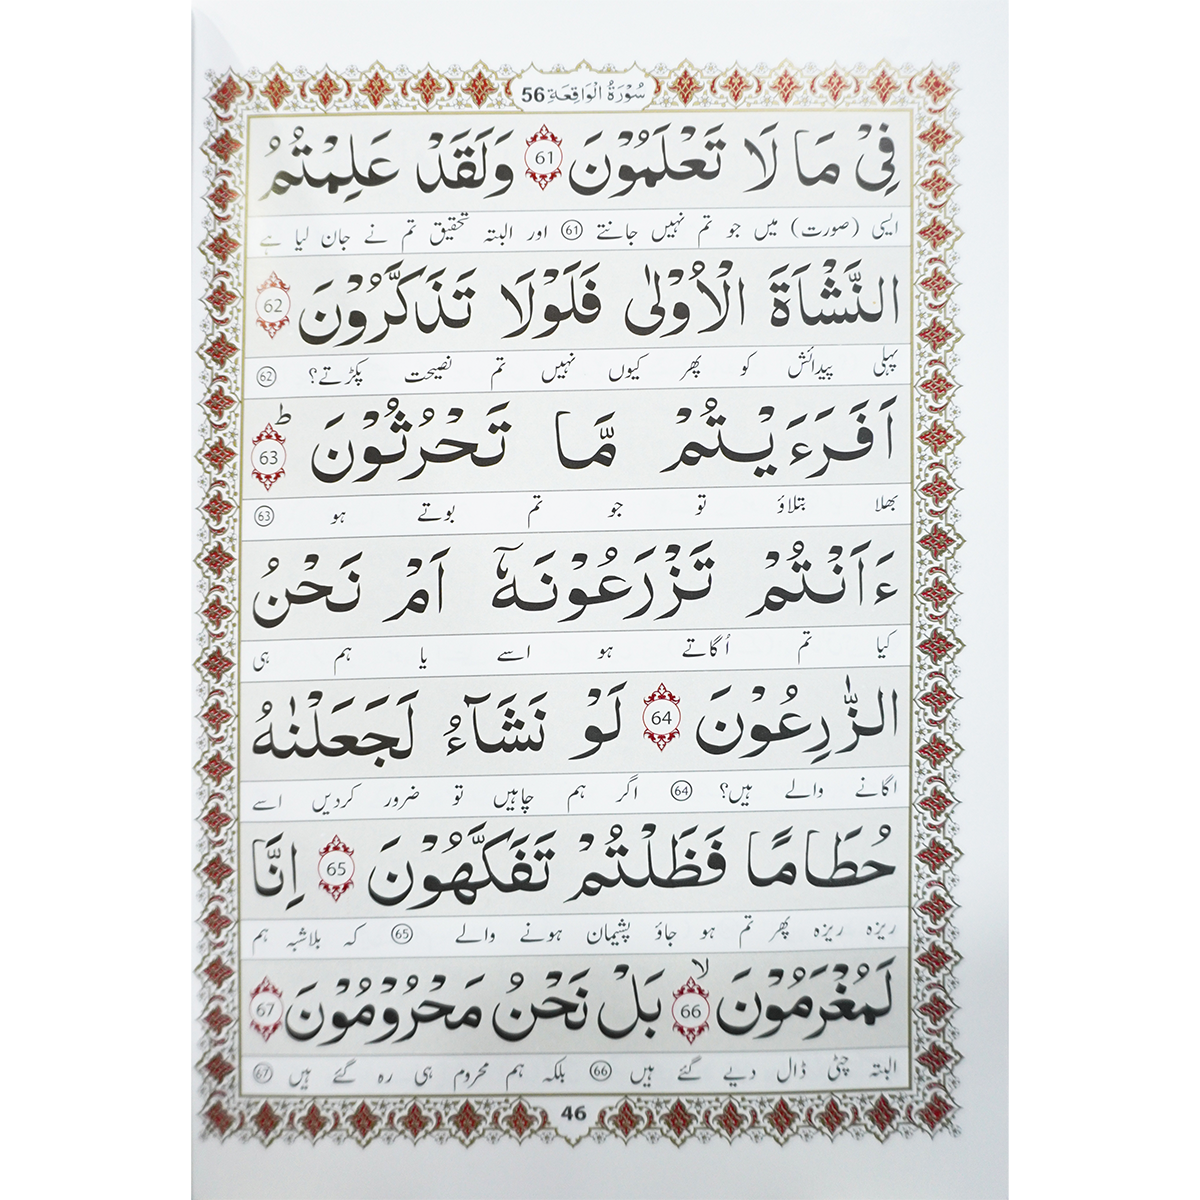 سُوْرَةُ الْوَاقِعَةِ 56
فِیْ مَا لَا تَعْلَمُوْنَ 61 وَلَقَدْ عَلِمْتُمُ
ایسی (صورت) میں جو تم نہیں جانتے 61 اور البتہ تحقیق تم نے جان لیا ہے
النَّشْاَةَ الْاُوْلٰی فَلَوْلَا تَذَكَّرُوْنَ 62
پہلی پیدائش کو پھر کیوں نہیں تم نصیحت پکڑتے؟ 62
اَفَرَءَیْتُمْ مَّا تَحْرُثُوْنَ 63 ؕ
بھلا بتلاؤ تو جو تم بوتے ہو 63
ءَاَنْتُمْ تَزْرَعُوْنَهٗۤ اَمْ نَحْنُ
کیا تم اُگاتے ہو اسے یا ہم ہی
الزّٰرِعُوْنَ 64 لَوْ نَشَآءُ لَجَعَلْنٰهُ
اگانے والے ہیں؟ 64 اگر ہم چاہیں تو ضرور کردیں اسے
حُطَامًا فَظَلْتُمْ تَفَكَّهُوْنَ 65 اِنَّا
ریزہ ریزہ پھر تم ہو جاؤ پشیمان ہونے والے 65 کہ بلاشبہ ہم
لَمُغْرَمُوْنَ 66 ۙ بَلْ نَحْنُ مَحْرُوْمُوْنَ 67
البتہ چٹی ڈال دیے گئے ہیں 66 بلکہ ہم محروم ہی رہ گئے ہیں 67
46